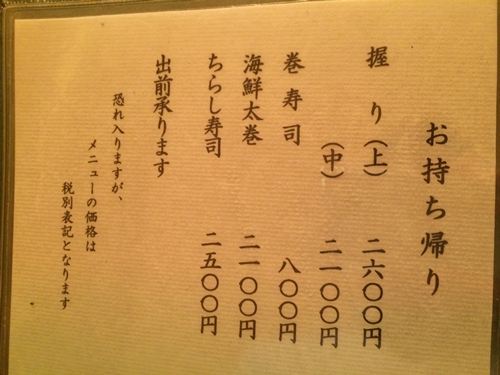 お持ち帰り
握り(上) 二六〇〇円
(中) 二一〇〇円
巻寿司 八〇〇円
海鮮太巻 二一〇〇円
ちらし寿司 二五〇〇円
出前承ります
恐れ入りますが、
メニューの価格は
税別表記となります